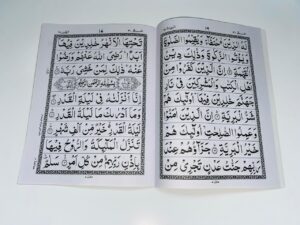 لَهُ الدِّيْنَ حُنَفَآءَ وَيُقِيْمُوا الصَّلٰوةَ
وَيُؤْتُوا الزَّكٰوةَ وَذٰلِكَ دِيْنُ
الْقَيِّمَةِ اِنَّ الَّذِيْنَ كَفَرُوْا مِنْ
اَهْلِ الْكِتٰبِ وَالْمُشْرِكِيْنَ فِيْ نَارِ
جَهَنَّمَ خٰلِدِيْنَ فِيْهَا اُولٰٓئِكَ هُمْ
شَرُّ الْبَرِيَّةِ اِنَّ الَّذِيْنَ اٰمَنُوْا
وَعَمِلُوا الصّٰلِحٰتِ اُولٰٓئِكَ هُمْ
خَيْرُ الْبَرِيَّةِ جَزَآؤُهُمْ عِنْدَ
رَبِّهِمْ جَنّٰتُ عَدْنٍ تَجْرِيْ مِنْ
تَحْتِهَا الْاَنْهٰرُ خٰلِدِيْنَ فِيْهَآ
اَبَدًا رَضِيَ اللّٰهُ عَنْهُمْ وَرَضُوْا
عَنْهُ ذٰلِكَ لِمَنْ خَشِيَ رَبَّهٗ
بِسْمِ اللّٰهِ الرَّحْمٰنِ الرَّحِيْمِ
اِنَّآ اَنْزَلْنٰهُ فِيْ لَيْلَةِ الْقَدْرِ
وَمَآ اَدْرٰىكَ مَا لَيْلَةُ الْقَدْرِ
لَيْلَةُ الْقَدْرِ خَيْرٌ مِّنْ اَلْفِ شَهْرٍ
تَنَزَّلُ الْمَلٰٓئِكَةُ وَالرُّوْحُ فِيْهَا
بِاِذْنِ رَبِّهِمْ مِنْ كُلِّ اَمْرٍ سَلٰمٌ